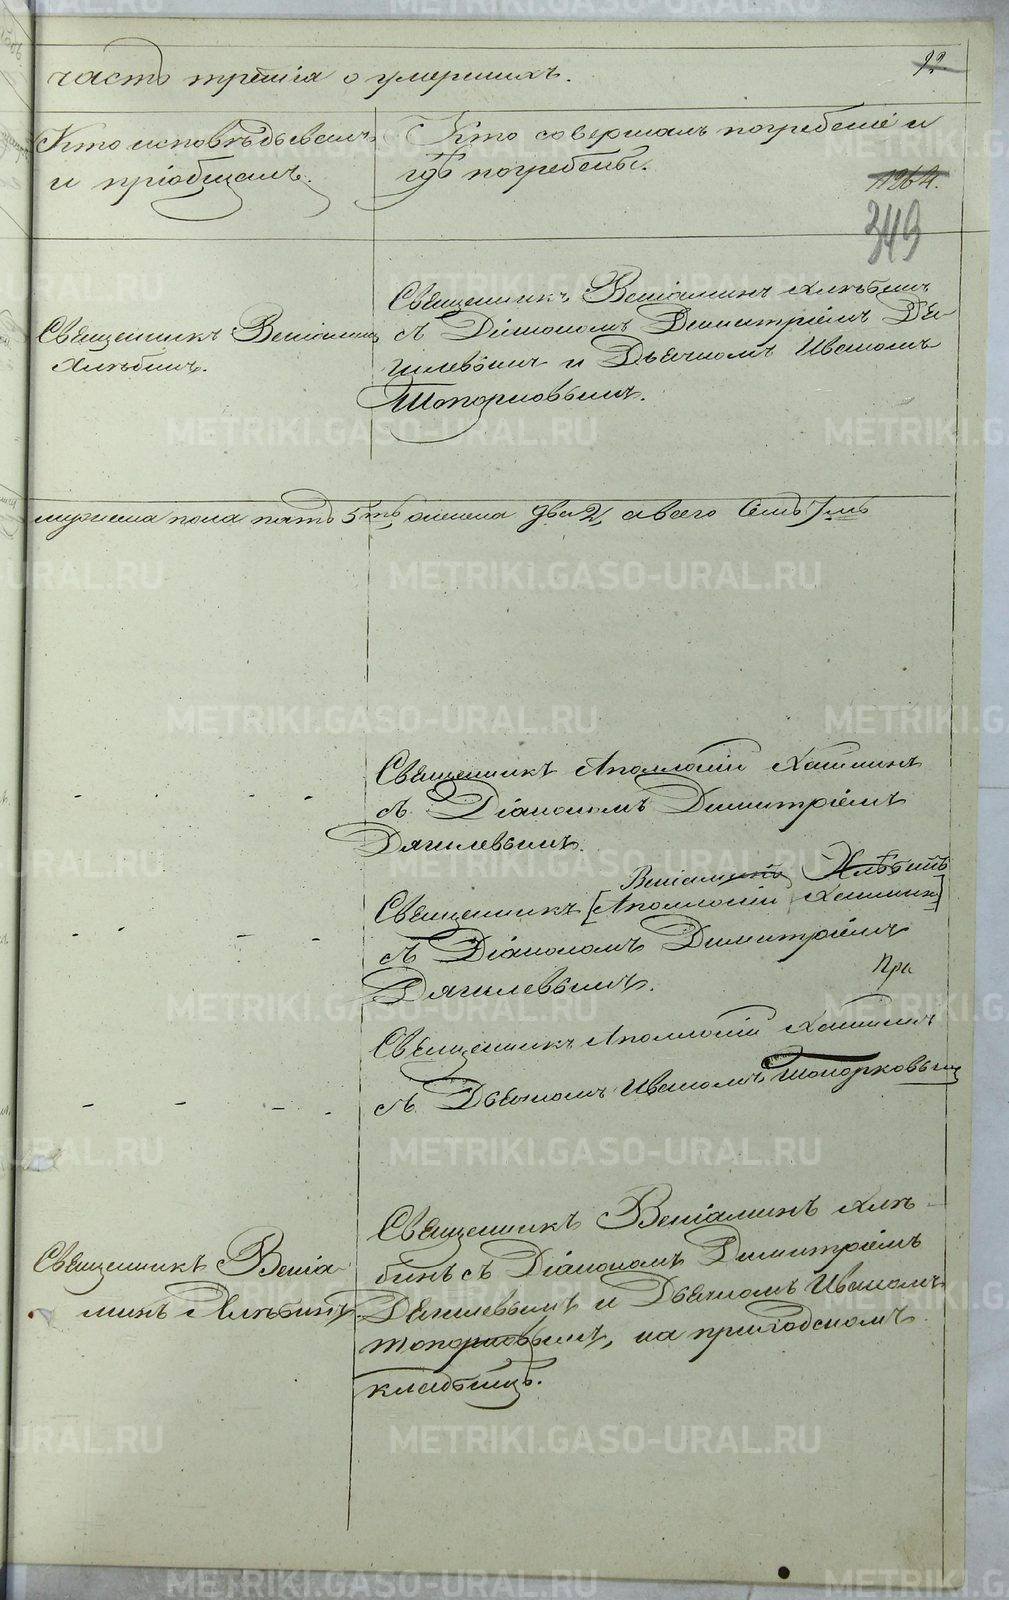 часть третія о умершихъ.
92
Кто исповѣдывалъ
и пріобщалъ.
Кто совершалъ погребеніе и
гдѣ погребены.
1264.
349
Священникъ Веніаминъ
Хлѣбинъ.
Священникъ Веніаминъ Хлѣбинъ
съ Діакономъ Димитріемъ Дя-
гилевымъ и Дьячкомъ Иваномъ
Топорковымъ.
мужеска пола пять 5ть, женска два 2, а всего семь 7мь
Священникъ Аполлоній Хатминъ
съ Діакономъ Димитріемъ
Дягилевымъ.
Веніаминъ Хлѣбинъ
Священникъ [Аполлоній Хатминъ]
съ Діакономъ Димитріемъ
Дягилевымъ.
При
Священникъ Аполлоній Хатминъ
съ Дьячкомъ Иваномъ Топорковымъ
Священникъ Веніа-
минъ Хлѣбинъ
Священникъ Веніаминъ Хлѣ-
бинъ съ Діакономъ Димитріемъ
Дягилевымъ и Дьячкомъ Иваномъ
Топорковымъ, на приходскомъ
кладбищѣ.
METRIKI.GASO-URAL.RU